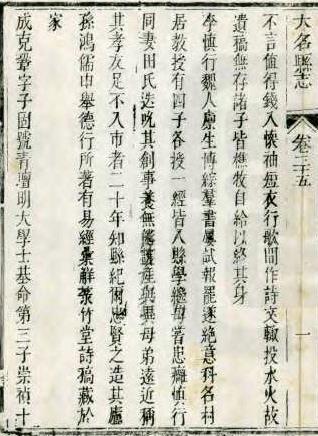 大名縣志 卷三十五 一
不言值得錢入懷袖短衣行歌間作詩文輙投水火故
遺稿無存諸子皆樵牧自給以終其身
李慎行魏人廩生博綜羣書屢試報罷遂絶意科名村
居教授有四子各授一經皆入縣學繼母著忠癱慎行
同妻田氏 其創事養無 異母弟遠近稱
其孝友足不入市者二十年知縣紀爾 賢之造其廬
孫鴻儒中舉德行所著有易經彙解 竹堂詩稿藏於
家
成克鞏字子固號青壇明大學士基命第三子崇禎十